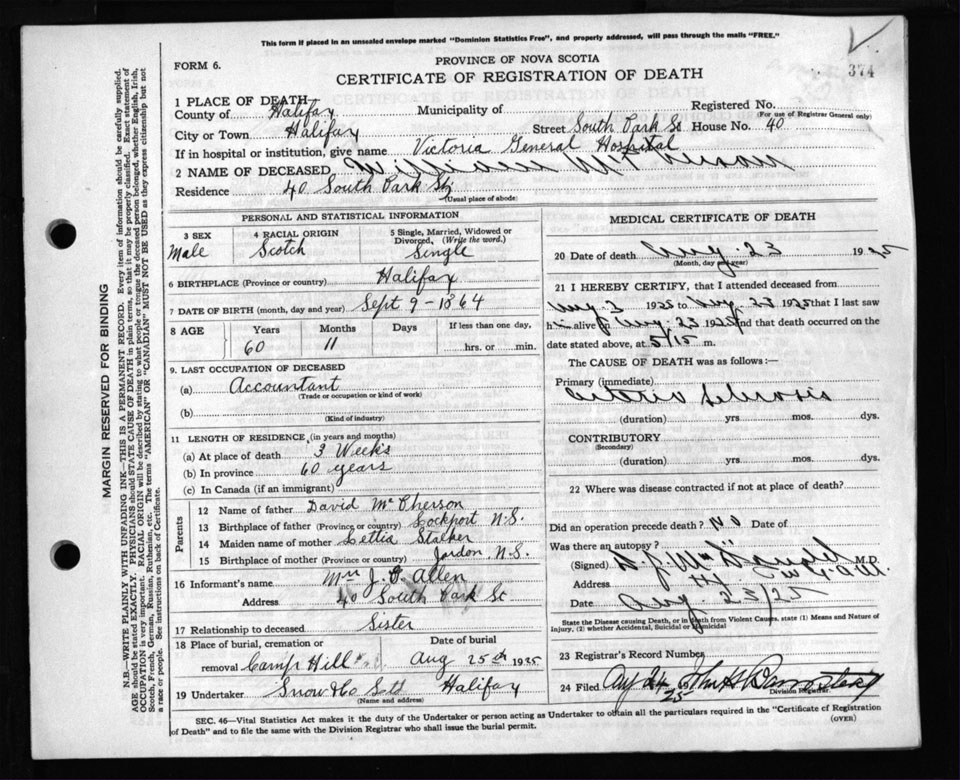 This form if placed in an unsealed envelope marked "Dominion Statistics Free", and properly addressed, will pass through the mails "FREE."
FORM 6.
PROVINCE OF NOVA SCOTIA
374
CERTIFICATE OF REGISTRATION OF DEATH
1 PLACE OF DEATH
County of Halifax Municipality of Registered No.
(For use of Registrar General only)
City or Town Halifax Street South Park St House No. 40
If in hospital or institution, give name Victoria General Hospital
2 NAME OF DECEASED William McPherson
Residence 40 South Park St
(Usual place of abode)
PERSONAL AND STATISTICAL INFORMATION
3 SEX Male
4 RACIAL ORIGIN Scotch
5 Single, Married, Widowed or Divorced, (Write the word.) Single
6 BIRTHPLACE (Province or country) Halifax
7 DATE OF BIRTH (month, day and year) Sept 9 - 1864
8 AGE Years Months Days If less than one day,
60 11 hrs. or min.
9. LAST OCCUPATION OF DECEASED
(a) Accountant
(Trade or occupation or kind of work)
(b)
(Kind of industry)
11 LENGTH OF RESIDENCE, (in years and months)
(a) At place of death 3 Weeks
(b) In province 60 years
(c) In Canada (if an immigrant)
Parents
12 Name of father David McPherson
13 Birthplace of father (Province or country) Lockport N.S.
14 Maiden name of mother Lettia Stalker
15 Birthplace of mother (Province or country) Jordon N.S.
16 Informant's name Mrs J. P. Allen
Address 40 South Park St
17 Relationship to deceased Sister
18 Place of burial, cremation or Date of burial
removal Camp Hill Aug 25th 1925
19 Undertaker Snow & Co Ltd Halifax
(Name and address)
MEDICAL CERTIFICATE OF DEATH
20 Date of death Aug. 23 1925
(Month, day and year)
21 I HEREBY CERTIFY, that I attended deceased from
Aug 3 1925 to Aug 23 1925 that I last saw
him alive on Aug 23 1925 and that death occurred on the
date stated above, at 5/15 m.
The CAUSE OF DEATH was as follows:—
Primary (immediate)
Arterio Sclerosis
(duration) yrs. mos. dys.
CONTRIBUTORY
(Secondary)
(duration) yrs. mos. dys.
22 Where was disease contracted if not at place of death?
Did an operation precede death? No Date of
Was there an autopsy?
(Signed) M.D.
Address
Date Aug. 23/25
State the Disease causing Death, or in death from Violent Causes, state (1) Means and Nature of
Injury, (2) whether Accidental, Suicidal or Homicidal
23 Registrar's Record Number
24 Filed Aug 24 25
Division Registrar
SEC. 46—Vital Statistics Act makes it the duty of the Undertaker or person acting as Undertaker to obtain all the particulars required in the "Certificate of Registration
of Death" and to file the same with the Division Registrar who shall issue the burial permit. (OVER)
MARGIN RESERVED FOR BINDING
N.B.—WRITE PLAINLY WITH UNFADING INK—THIS IS A PERMANENT RECORD. Every item of information should be carefully supplied.
AGE should be stated EXACTLY. PHYSICIANS should STATE CAUSE OF DEATH in plain terms, so that it may be properly classified. Exact statement of
OCCUPATION is very important. RACIAL ORIGIN will be described by stating to what people or tongue the deceased person belonged, whether English, Irish,
Scotch, French, German, Russian, Ruthenian, etc. The terms "AMERICAN" OR "CANADIAN" MUST NOT BE USED as they express citizenship but not
a race or people. See instructions on back of Certificate.